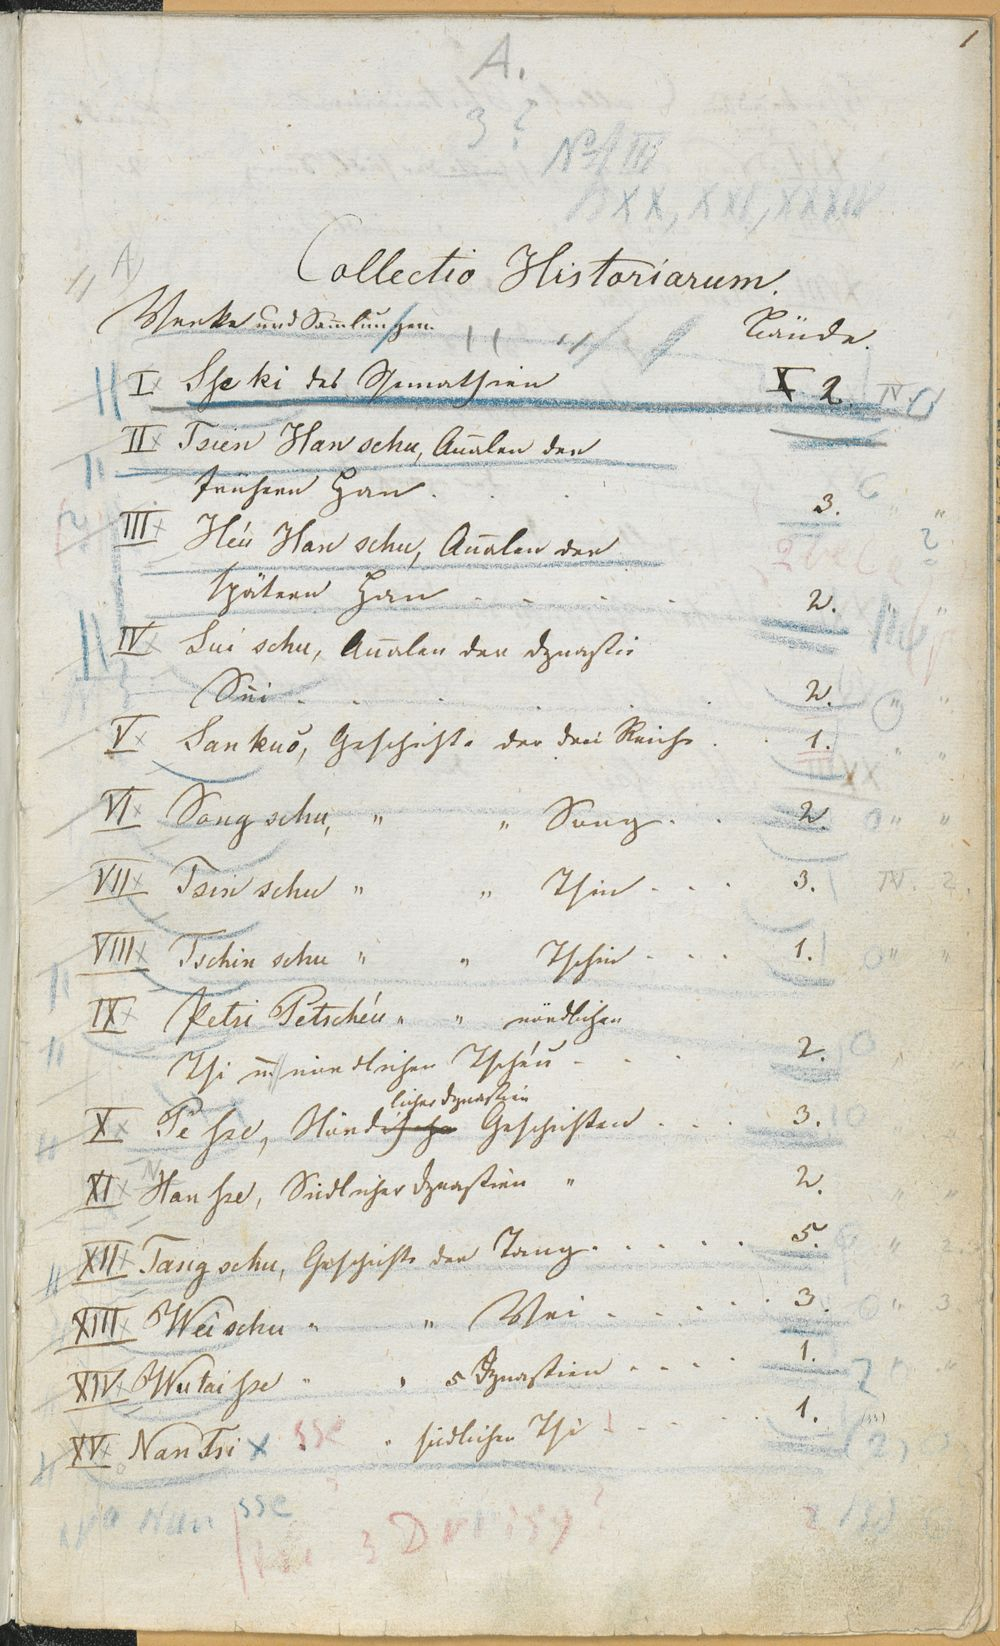 1
A.
3 ?
No III
XX, XXI, XXXIV
A)
Collectio Historiarum.
Werke und Sammlungen. Bände.
I Sse ki des Ssemathsien X 2. IV
II x Tsien Han schu, Annalen der
frühern Han . . . 3. 6 "
III x Héu Han schu, Annalen der
spätern Han . . . . 2.
IV x Sui schu, Annalen der Dynastie
Sui . . . . 2.
V x San kuŏ, Geschichte der drei Reiche . . 1.
VI x Song schu, " " Song . . 2. 0 " "
VII x Tsin schu " " Thsin . . . 3. IV. 2.
VIII x Tschin schu " " Tschin . . . 1. 0 " "
IX x Petsi Petschéu " " nördlichen
Thsi u. nördlichen Tschéu . . . 2. 0
licher Dynastien
X x Pe sse, Nördische Geschichten . . . 3. 0
XI x Nan sse, Südlicher Dynastien " 2. " "
XII x Tang schu, Geschichte der Tang . . . . . 5.
XIII x Wei schu " " Wei . . . . . 3. 0 " 3
XIV x Wu tai sse " " 5 Dynastien . . . . 1. 2 "
XV x Nan Tsi x sse " südlichen Thsi . . 1. 2,
Nan sse